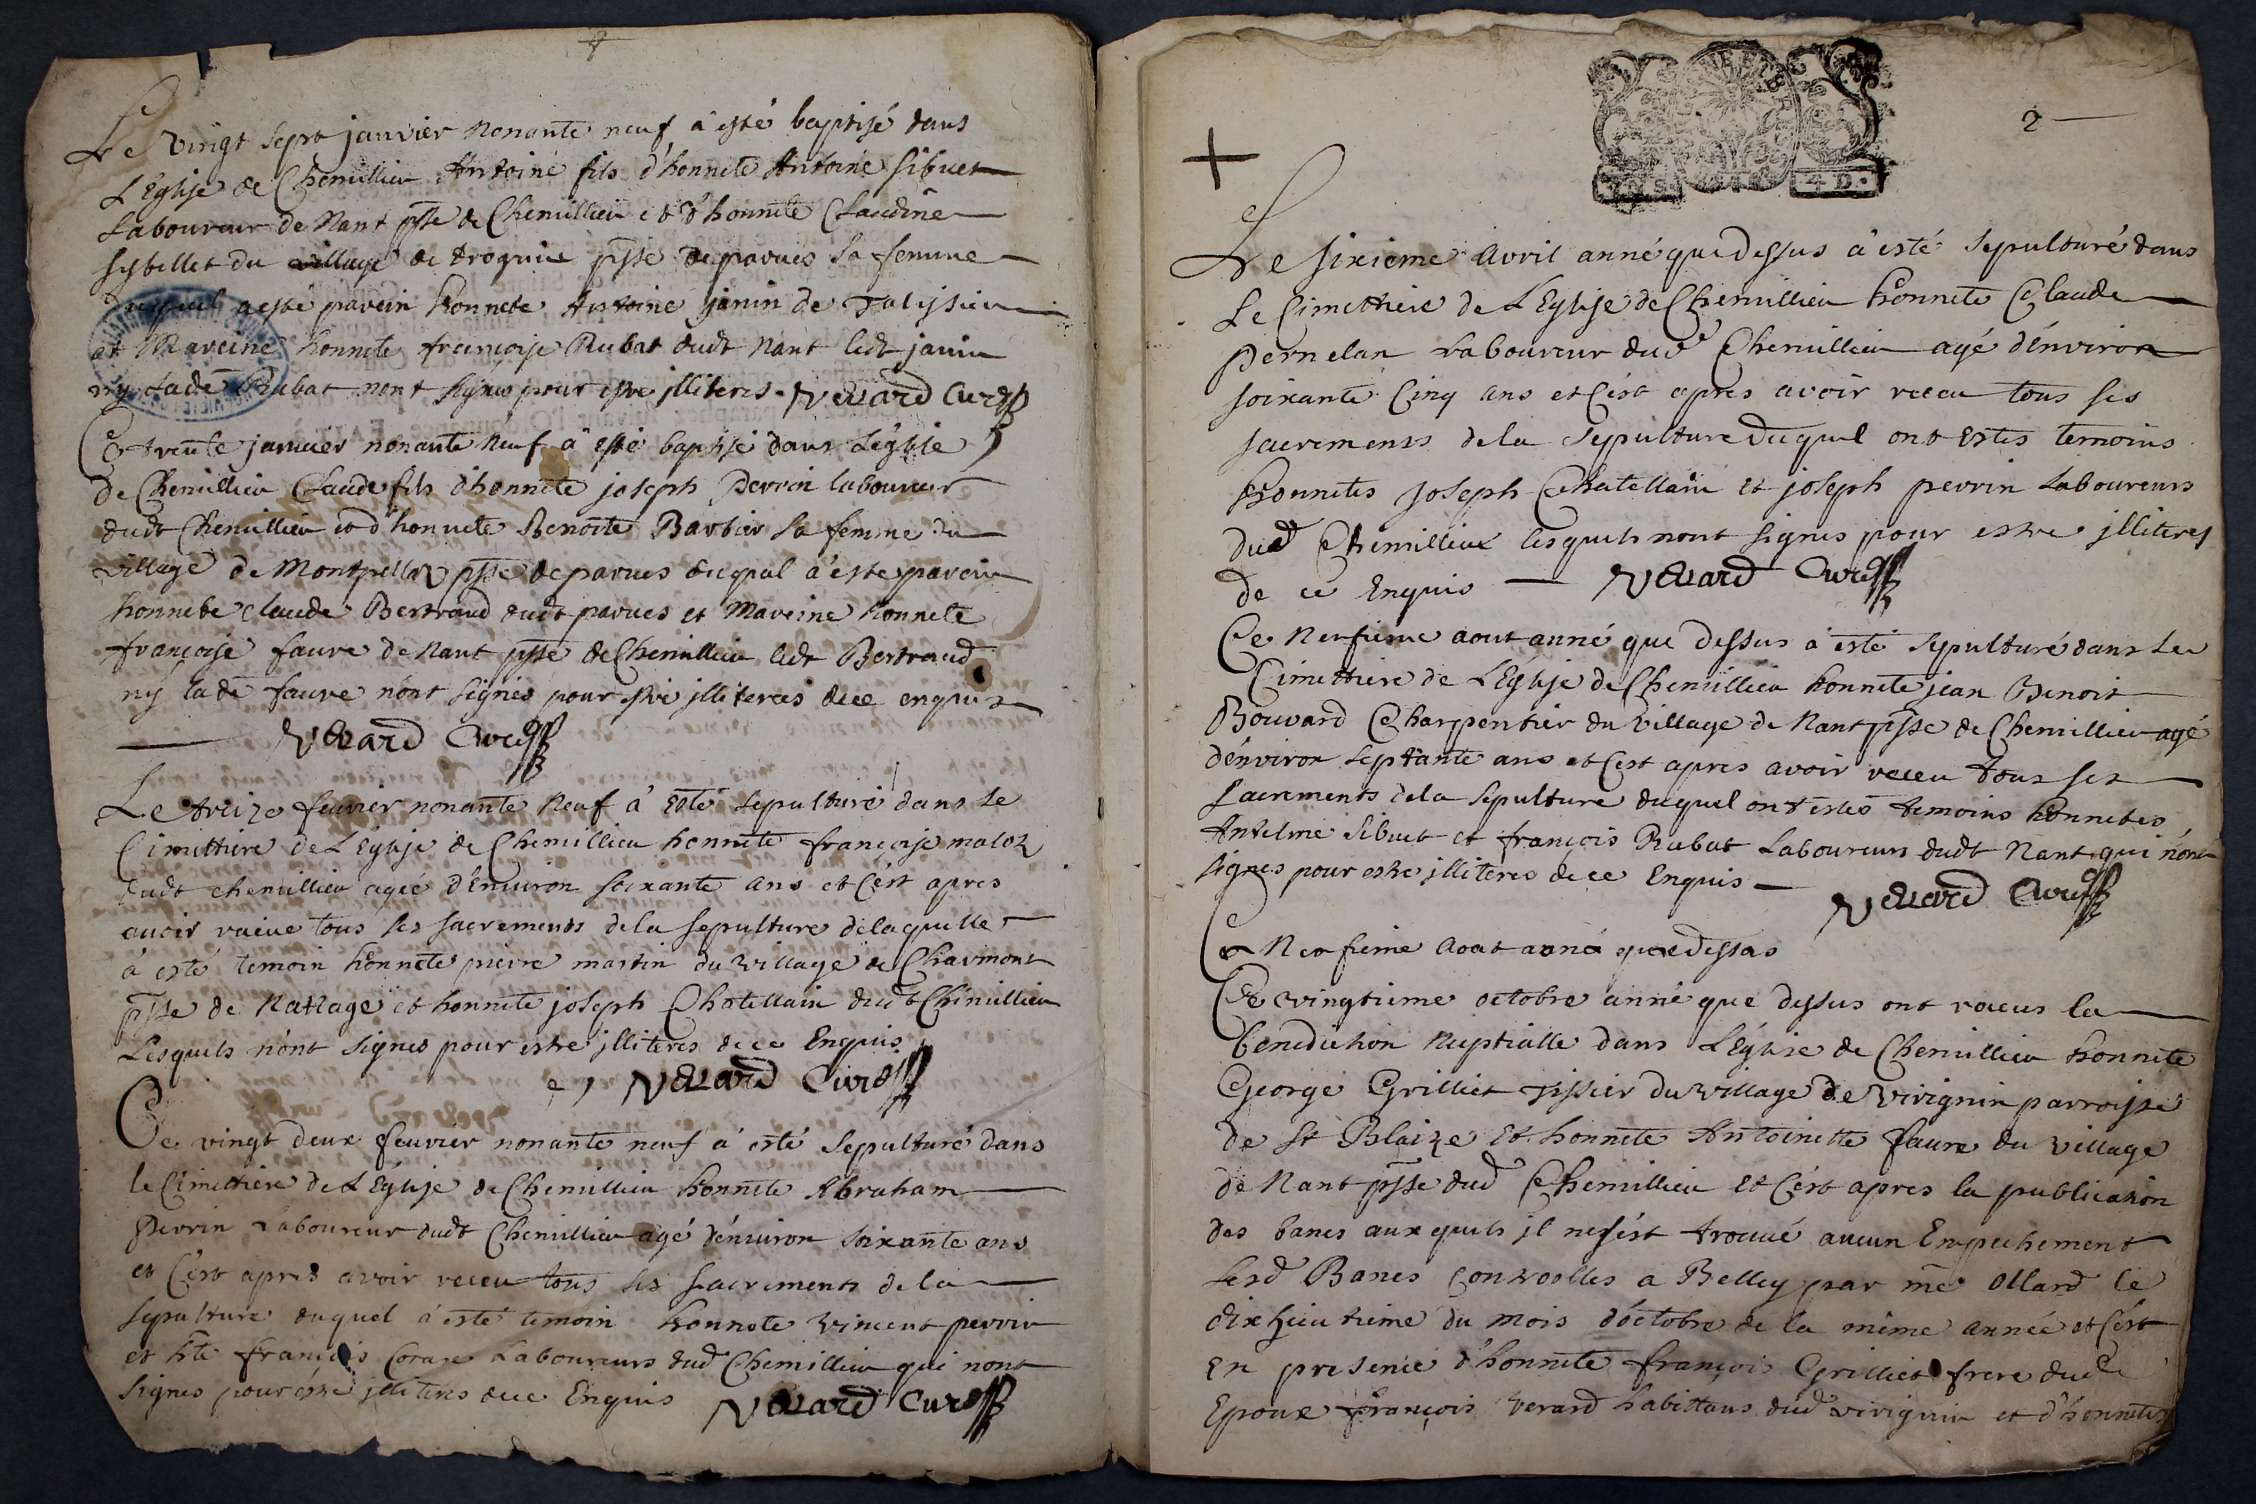 Le vingt sept janvier nonante neuf à esté baptisé dans
L'Eglise de Chemillieu Antoine fils d'honnete Antoine Sibuet
Laboureur de Nant psse de Chemillieu et d'honnete Claudine
Sybillet du village de psse de parves sa femme
duquel a esté parein honnete Antoine janin de Talissieu
et Mareine honnete françoise Rubat dudt Nant ledt janin
ny lade Rubat nont signes pour estre jlliteres. Vellard Curé
Ce trente janvier nonante neuf à esté baptisé dans Léglise
de Chemillieu Claude fils d'honnete joseph Perrin laboureur
dudt Chemillieu et d'honnete Benoite Barbier sa femme du
village de Montpellaz psse de parves duquel à esté parein
honnete Claude Bertrand dudt parves et Mareine honnete
françoise faure de Nant psse de Chemillieu ledt Bertrand
ny lade faure nont signés pour estre jlliteres de ce enquis
Vellard Curé
Le treize fevrier nonante neuf à esté sepulturé dans le
Cimettiere de L'Eglise de Chemillieu honnete françoise
dudt chemillieu agée d'environ soixante ans et C'est apres
avoir receue tous ses sacrements dela sepulture de laquelle
à esté temoin honnete pierre martin du village de Charmont
psse de Nattage et honnete joseph Chatellain dudt Chimillieu
Lesquels nont signes pour estre jlliteres de ce Enquis
Vellard Curé
Ce vingt deux fevrier nonante neuf à esté sepulturé dans
le Cimettiere de L'Eglise de Chemillieu honnete Abraham
Perrin Laboureur dudt Chemillieu agé d'environ soixante ans
et C'est apres avoir receu tous ses sacrements de la
sepulture duquel à esté temoin honnete Vincent perrin
et hte françois Laboureurs dud Chemillieu qui nont
signes pour estre jlliteres de ce Enquis Vellard Curé
2
4 D.
Le sixieme avril anné que dessus à esté sepulturé dans
Le Cimettiere de L'Eglise de Chemillieu honnete Claude
Pernelan Laboureur dud Chemillieu agé d'environ
soixante Cinq ans et C'est apres avoir receu tous ses
sacrements dela sepulture Duquel ont Estes temoins
honnetes Joseph Chatellain et joseph perrin Laboureurs
Dud Chemillieu lesquels nont signes pour estre jlliteres
de ce Enquis Vellard Curé
Ce Neufieme aout anné que dessus à esté sepulturé dans Le
Cimettiere de L'Eglise de Chemillieu honnete jean Benoit
Bouvard Charpentier du village de Nant psse de Chemillieu agé
d'environ septante ans et C'est apres avoir receu tous ses
sacrements dela sepulture duquel ont estés temoins honnetes
Antelme Sibuet et françois Rubat Laboureurs dudt Nant qui nont
signes pour estre jlliteres de ce Enquis Vellard Curé
Ce Neufieme Aout anné que dessus
Ce vingtieme octobre anné que dessus ont receus la
Benediction Nuptialle dans L'église de Chemillieu honnete
George Grilliet Tissier du village de virignin parroisse
de St Blaize Et honnete Antoinette faure du village
de Nant psse dud Chemillieu et C'est apres la publication
des bancs auxquels il ne s'est trouvé aucun Empechement
Lesd Bancs Controolles a Belley par me ollard le
dixhuitieme du mois d'octobre de la mème année et C'est
En presence d'honnete françois Grilliet frere dud
Epoux françois verard habittans dud virignin et d'honnetes